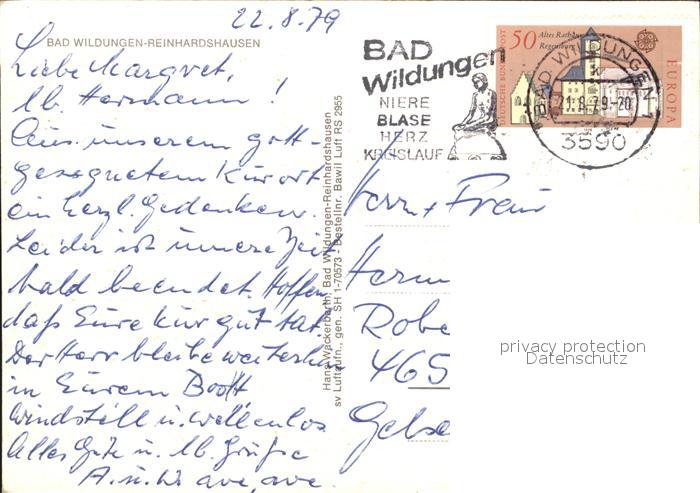 22.8.79
BAD WILDUNGEN-REINHARDSHAUSEN
Liebe Margret,
lb. Hermann!
Aus unserem gott-
gesegneten Kurort
ein herzl. Gedenken.
Leider ist unsere Zeit
bald beendet. Hoffen,
daß Eure Kur gut tat.
Der Herr bleibe weiterhin
in Eurem Boot
windstill u. wellenlos
Alles Gute u. lb. Grüße
A. u. W
Hans Wackerbarth, Bad Wildungen-Reinhardshausen
sv Luftaufn., gen. SH 1-70573 - Bestellnr. Bawil Luft RS 2955
BAD
Wildungen
NIERE
BLASE
HERZ
KREISLAUF
DEUTSCHE BUNDESPOST
50
Altes Rathaus
Regensburg
EUROPA
BAD WILDUNGEN 1
21.8.79-20
3590
Herrn + Frau
Herm
Robe
465
Gelse
privacy protection
Datenschutz